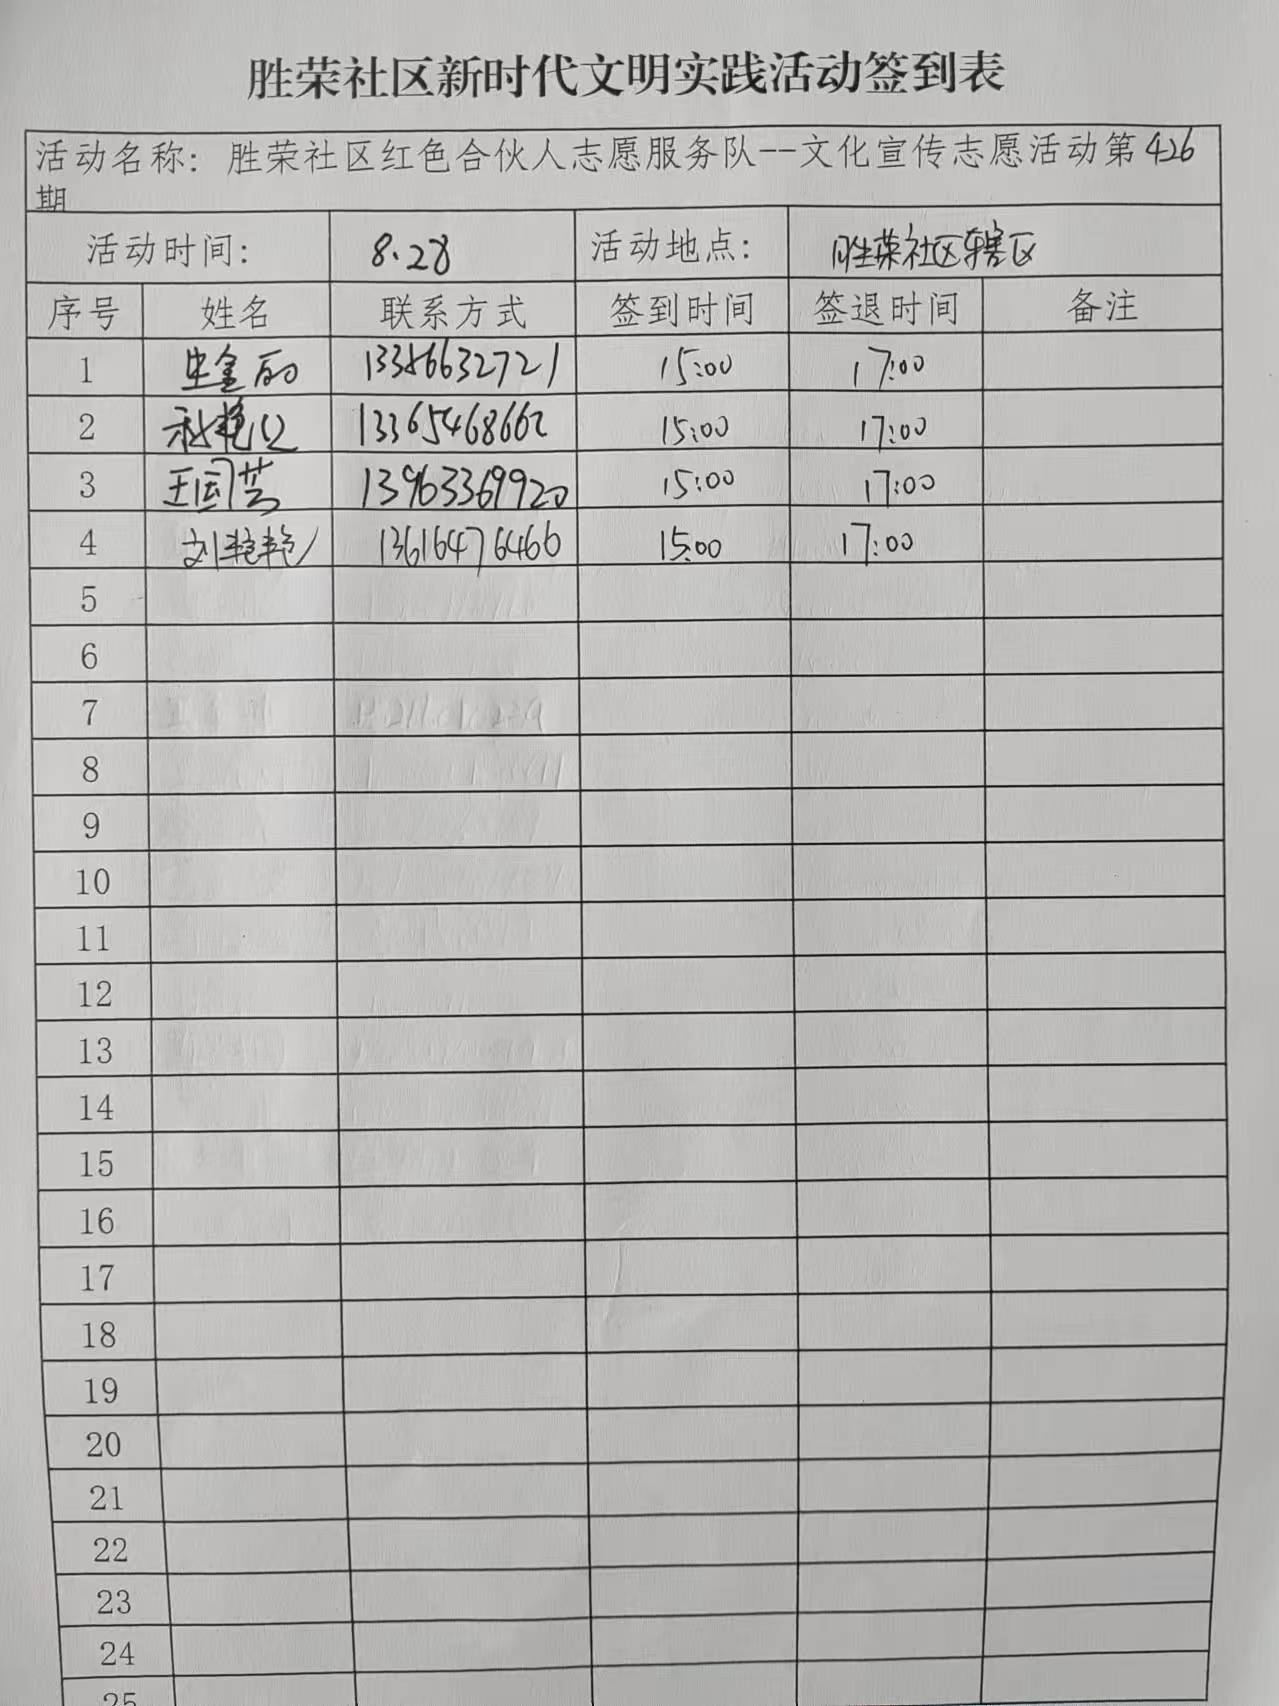 胜荣社区新时代文明实践活动签到表
活动名称：胜荣社区红色合伙人志愿服务队--文化宣传志愿活动第426
期
活动时间： 8.28 活动地点： 胜荣社区辖区
序号 姓名 联系方式 签到时间 签退时间 备注
1 史金丽 13386632721 15:00 17:00
2 13365468662 15:00 17:00
3 王国芸 13963369920 15:00 17:00
4 刘艳艳 13616476466 15:00 17:00
5
6
7
8
9
10
11
12
13
14
15
16
17
18
19
20
21
22
23
24
25